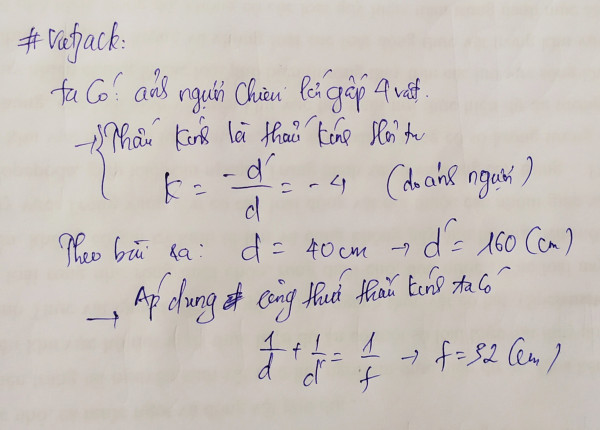 # Vietjack:
ta Có: ảnh ngược Chiều lớn gấp 4 vật.
→ Thấu kính là thấu kính Hội tụ
K = -d'/d = -4 (do ảnh ngược)
Theo bài ra: d = 40cm → d' = 160 (cm)
→ Áp dụng công thức thấu kính ta có
1/d + 1/d' = 1/f → f = 32 (cm)